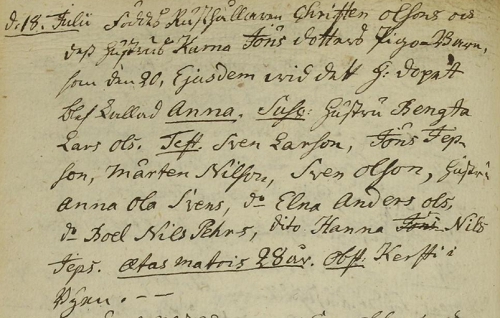 d. 18. Julii Föddes Rusthållaren Christen Olsons och
dess Hustrus Karna Jöns dotters Pigo-Barn,
som den 20, Ejusdem wid det H: dopet
blef kallad Anna. Susc: Hustru Bengta
Lars ols. Test. Sven Larson, Jöns Jep-
son, Mårten Nilson, Sven olson, Hustru
Anna Ola Svens, do Elna Anders ols,
do Boel Nils Pehrs, dito Hanna Jöns Nils
Jeps. ætas matris 28 år. obst. Kersti i